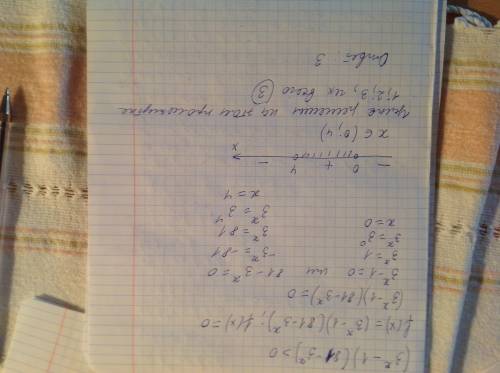 (3ˣ-1)(81-3ˣ)>0
f(x)=(3ˣ-1)(81-3ˣ); f(x)=0
(3ˣ-1)(81-3ˣ)=0
3ˣ-1=0 или 81-3ˣ=0
3ˣ=1 -3ˣ=-81
3ˣ=3⁰ 3ˣ=81
x=0 3ˣ=3⁴
x=4
- + -
0 4 x
x∈(0;4)
целые решения на этом промежутке
1;2;3, их всего 3
Ответ: 3